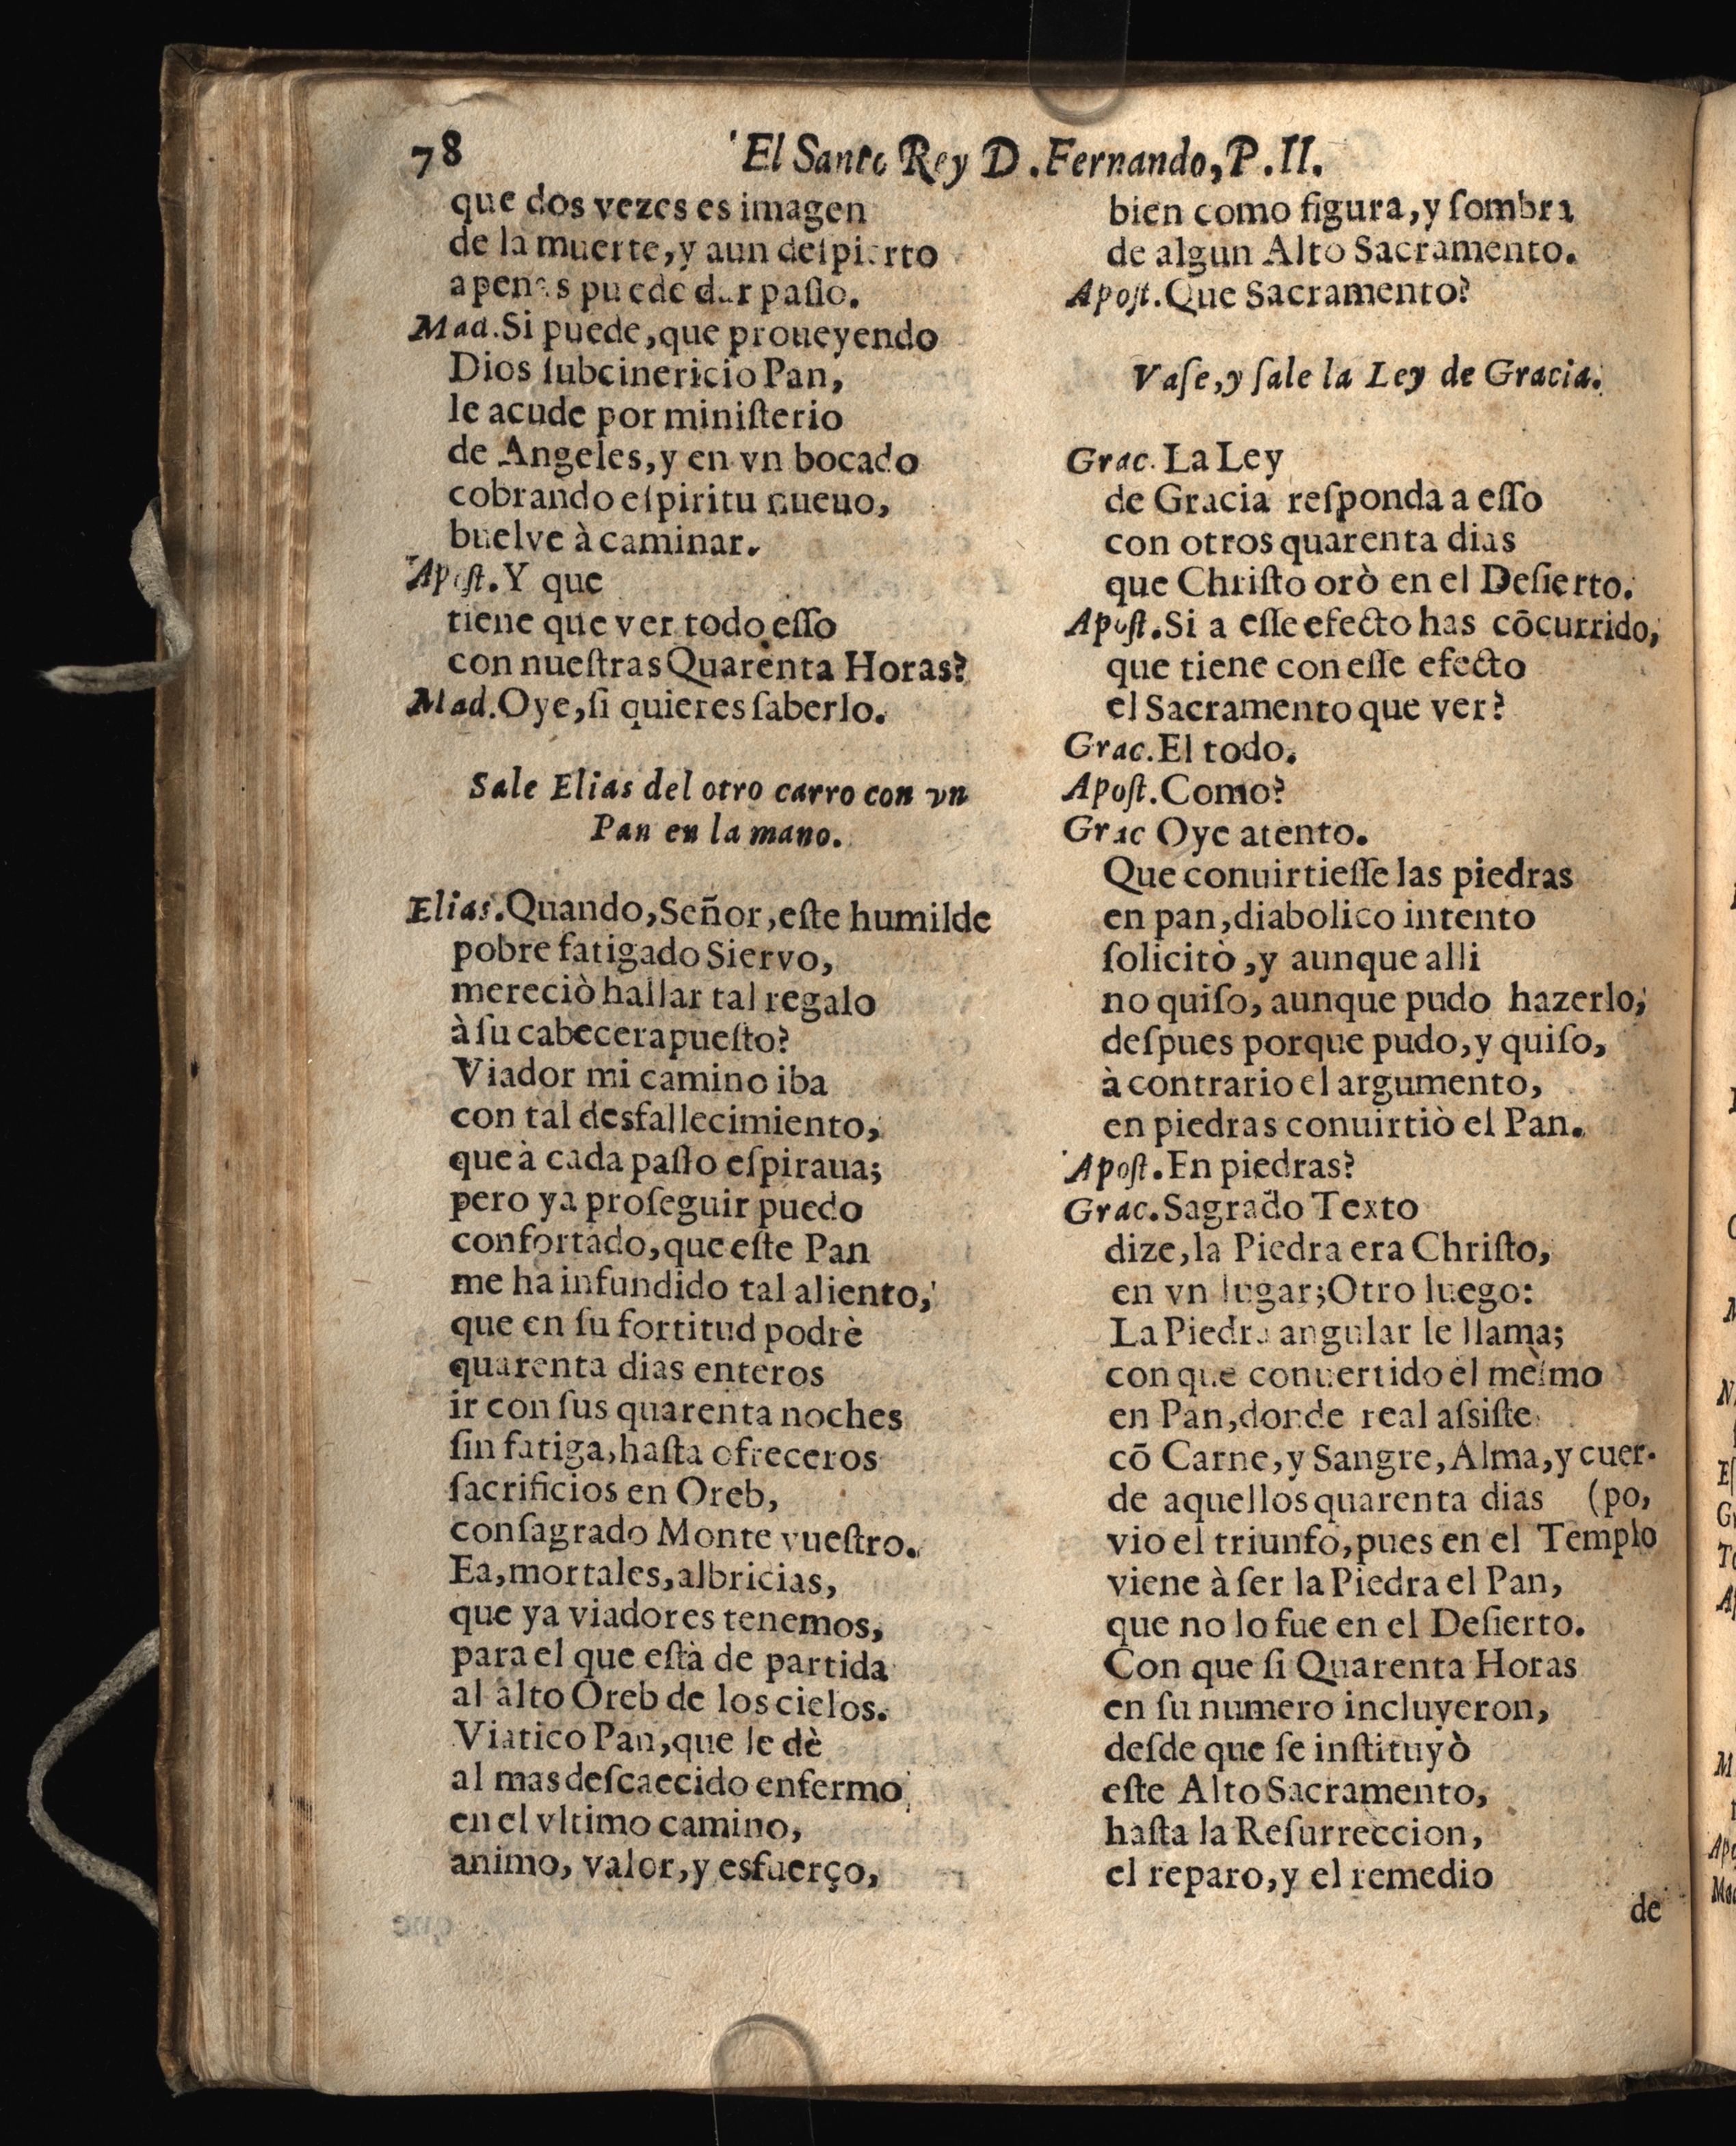 78
El Santo Rey D. Fernando, P. II.
que dos vezes es imagen
de la muerte, y aun deſpierto
apenas puede dar paſſo.
Mad. Si puede, que proueyendo
Dios ſubcinericio Pan,
le acude por miniſterio
de Angeles, y en vn bocado
cobrando eſpiritu nueuo,
buelve à caminar.
Apoſt. Y que
tiene que ver todo eſſo
con nueſtras Quarenta Horas?
Mad. Oye, ſi quieres ſaberlo.
Sale Elias del otro carro con vn
Pan en la mano.
Elias. Quando, Señor, eſte humilde
pobre fatigado Siervo,
mereciò hallar tal regalo
à ſu cabecera pueſto?
Viador mi camino iba
con tal desfallecimiento,
que à cada paſſo eſpiraua;
pero ya proſeguir puedo
confortado, que eſte Pan
me ha infundido tal aliento,
que en ſu fortitud podrè
quarenta dias enteros
ir con ſus quarenta noches
ſin fatiga, haſta ofreceros
ſacrificios en Oreb,
conſagrado Monte vueſtro.
Ea, mortales, albricias,
que ya viadores tenemos,
para el que eſtà de partida
al alto Oreb de los cielos.
Viatico Pan, que le dè
al mas deſcaecido enfermo
en el vltimo camino,
animo, valor, y esfuerço,
bien como figura, y ſombra
de algun Alto Sacramento.
Apoſt. Que Sacramento?
Vaſe, y ſale la Ley de Gracia.
Grac. La Ley
de Gracia reſponda a eſſo
con otros quarenta dias
que Chriſto orò en el Deſierto.
Apoſt. Si a eſſe efecto has cōcurrido,
que tiene con eſſe efecto
el Sacramento que ver?
Grac. El todo.
Apoſt. Como?
Grac Oye atento.
Que conuirtieſſe las piedras
en pan, diabolico intento
ſolicitò, y aunque alli
no quiſo, aunque pudo hazerlo,
deſpues porque pudo, y quiſo,
à contrario el argumento,
en piedras conuirtiò el Pan.
Apoſt. En piedras?
Grac. Sagrado Texto
dize, la Piedra era Chriſto,
en vn lugar; Otro luego:
La Piedra angular le llama;
con que conuertido èl meſmo
en Pan, donde real aſsiſte
cō Carne, y Sangre, Alma, y cuer-
de aquellos quarenta dias (po,
vio el triunfo, pues en el Templo
viene à ſer la Piedra el Pan,
que no lo fue en el Deſierto.
Con que ſi Quarenta Horas
en ſu numero incluyeron,
deſde que ſe inſtituyò
eſte Alto Sacramento,
haſta la Reſurreccion,
el reparo, y el remedio
de